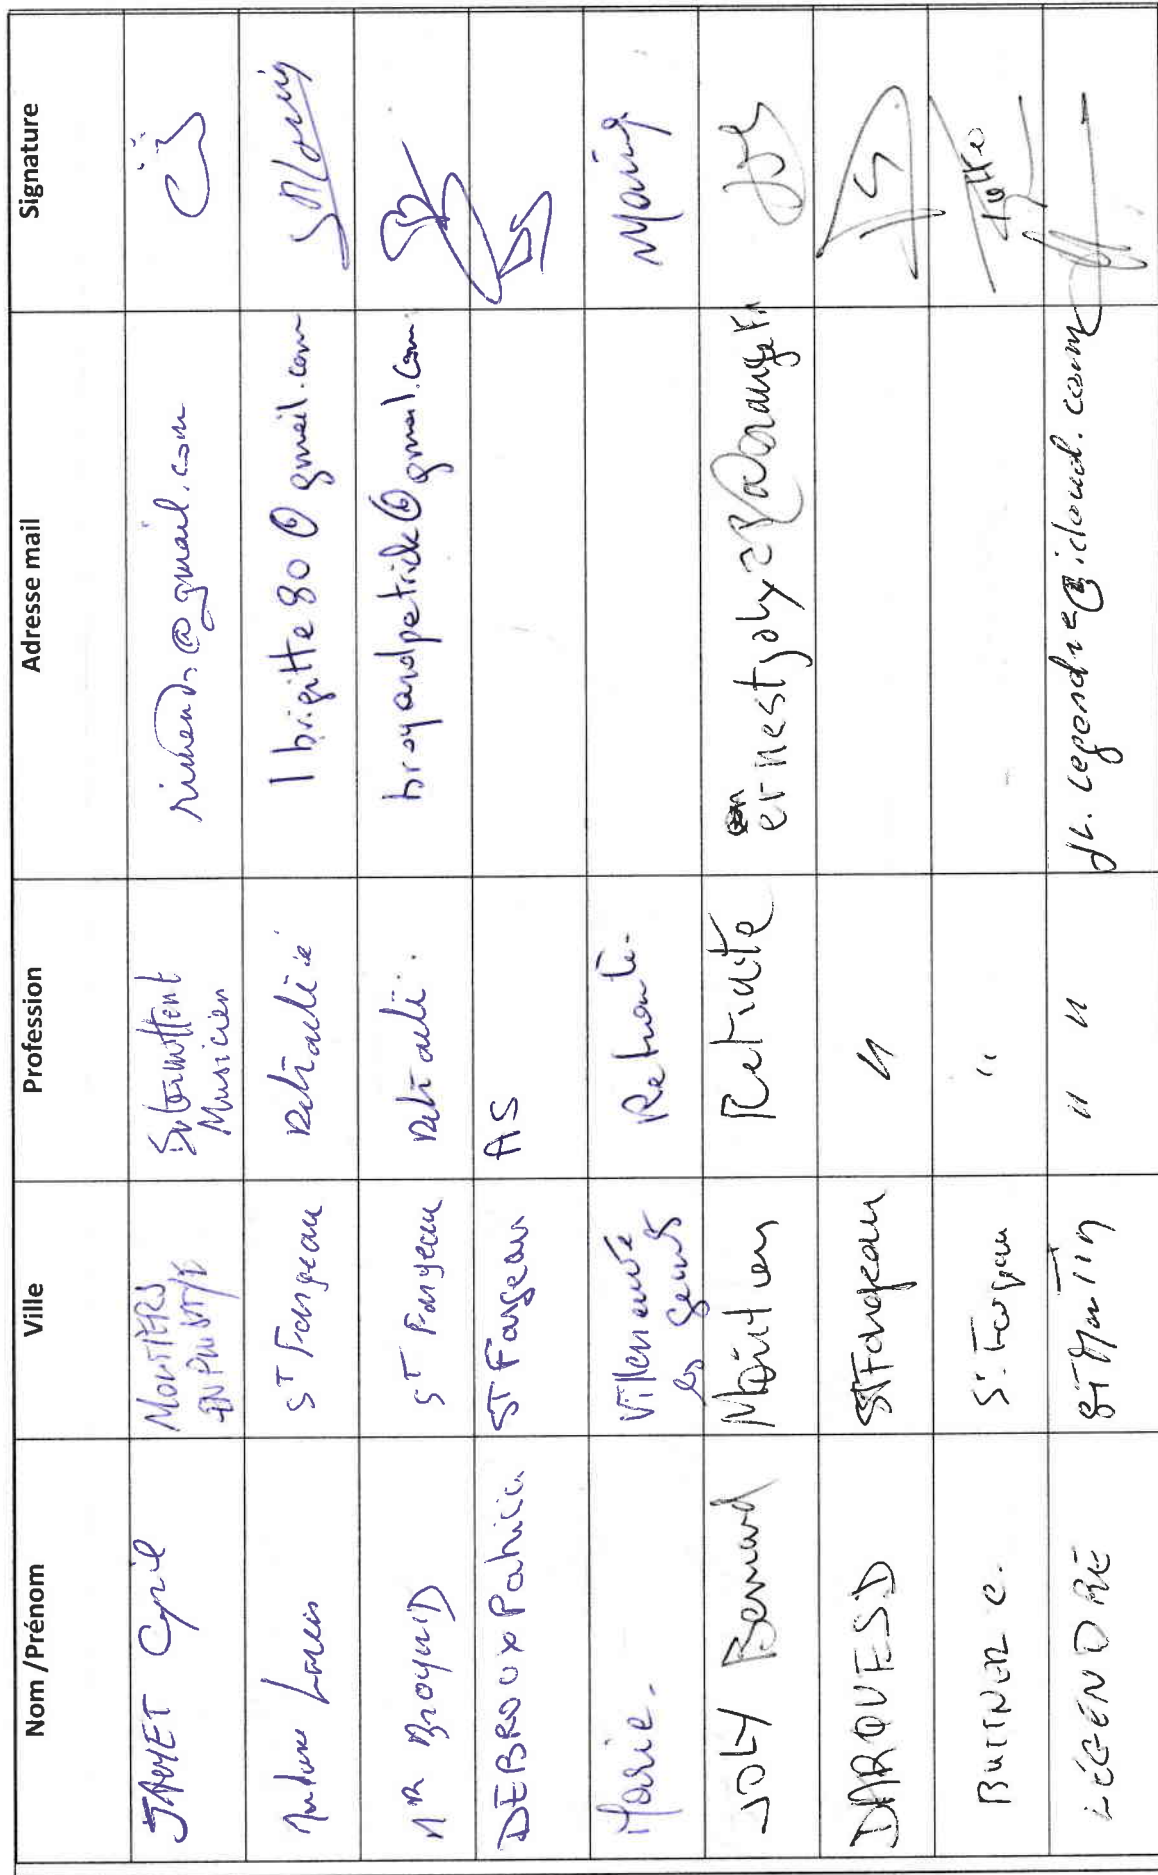 Nom /Prénom Ville Profession Adresse mail Signature
JAMET Cyril MOUTIERS EN PUISAYE Intermittent Musicien @gmail.com
ST Fargeau Retraité 1brigitte80@gmail.com
MR Broyard ST Fargeau Retraité. broyardpatrick@gmail.com
DEBROUX Patricia ST Fargeau AS
Marie. Villeneuve les Genets Retraité. Marie
JOLY Bernard Retraité ernestjoly22@orange.fr
DARQUES D ST Fargeau "
BUTTNER C. St. Fargeau "
LEGENDRE St Martin " " jl.legendre@icloud.com